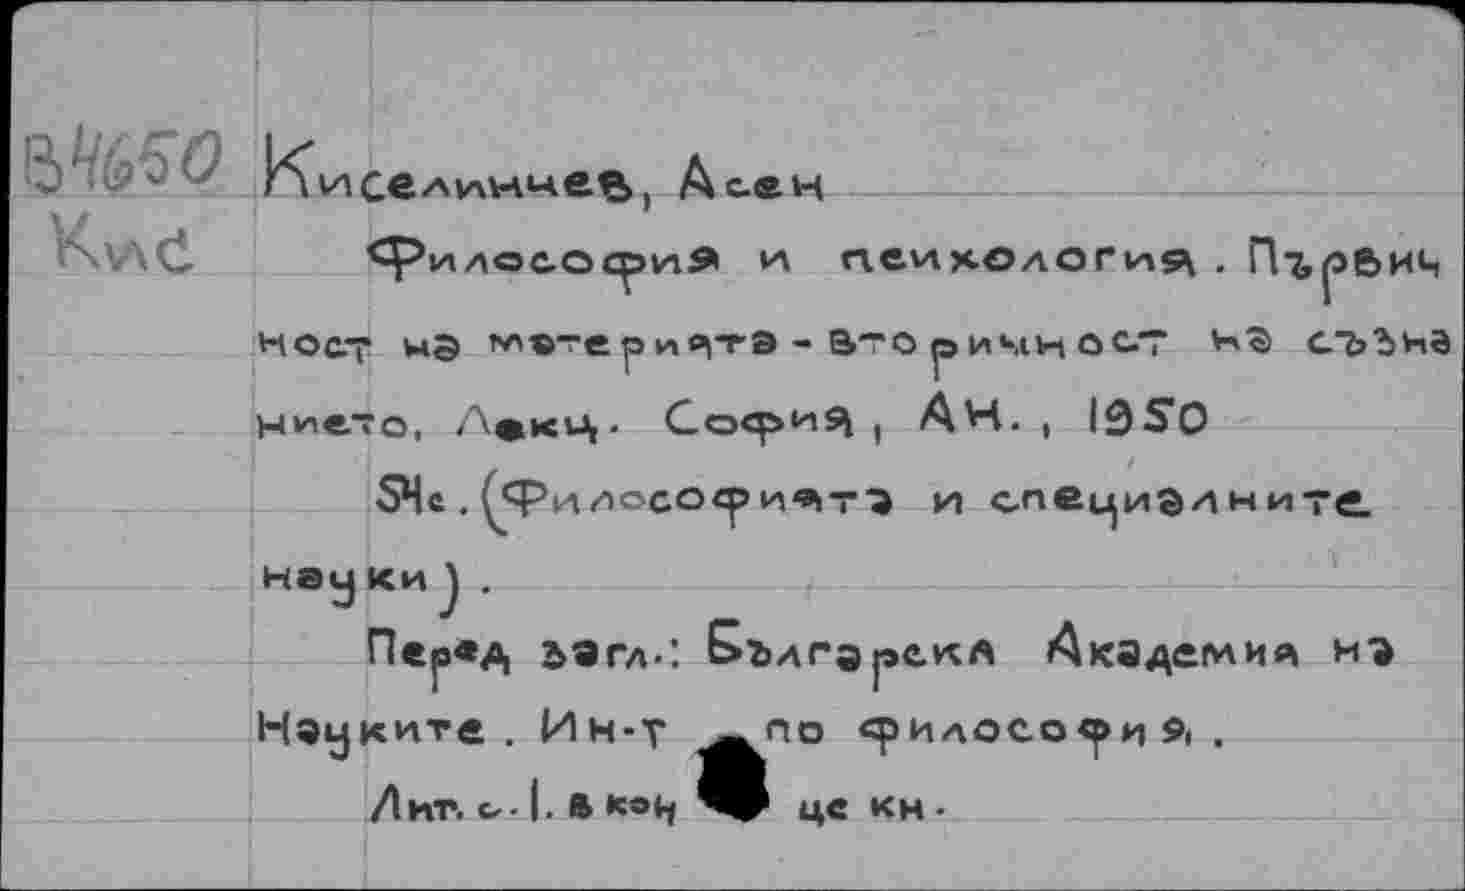 В4650 Киселинчев, Асен
Кис Философия и психология. Първич
ност на материята - вторичност на съзна
нието, Лекц. София, АН., 1950
54с. (Философията и специалните
науки).
Перед загл.: Българска Академия на
Науките. Ин-т по философия.
Лит. с. 1. в кон це кн.